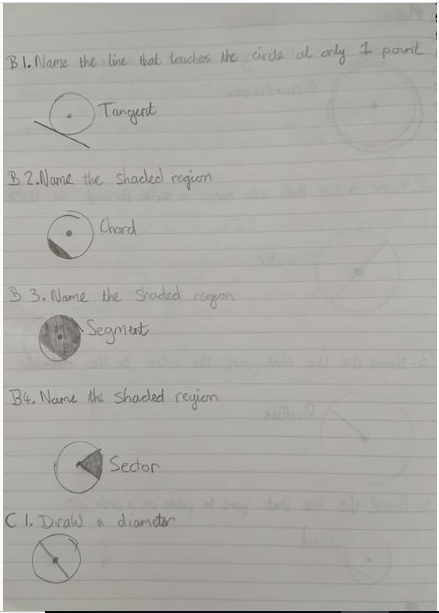 B1. Name the line that touches the circle at only 1 point
Tangent
B2. Name the shaded region
Chord
B 3. Name the shaded region
Segment
B4. Name the shaded region
Sector
C 1. Draw a diameter